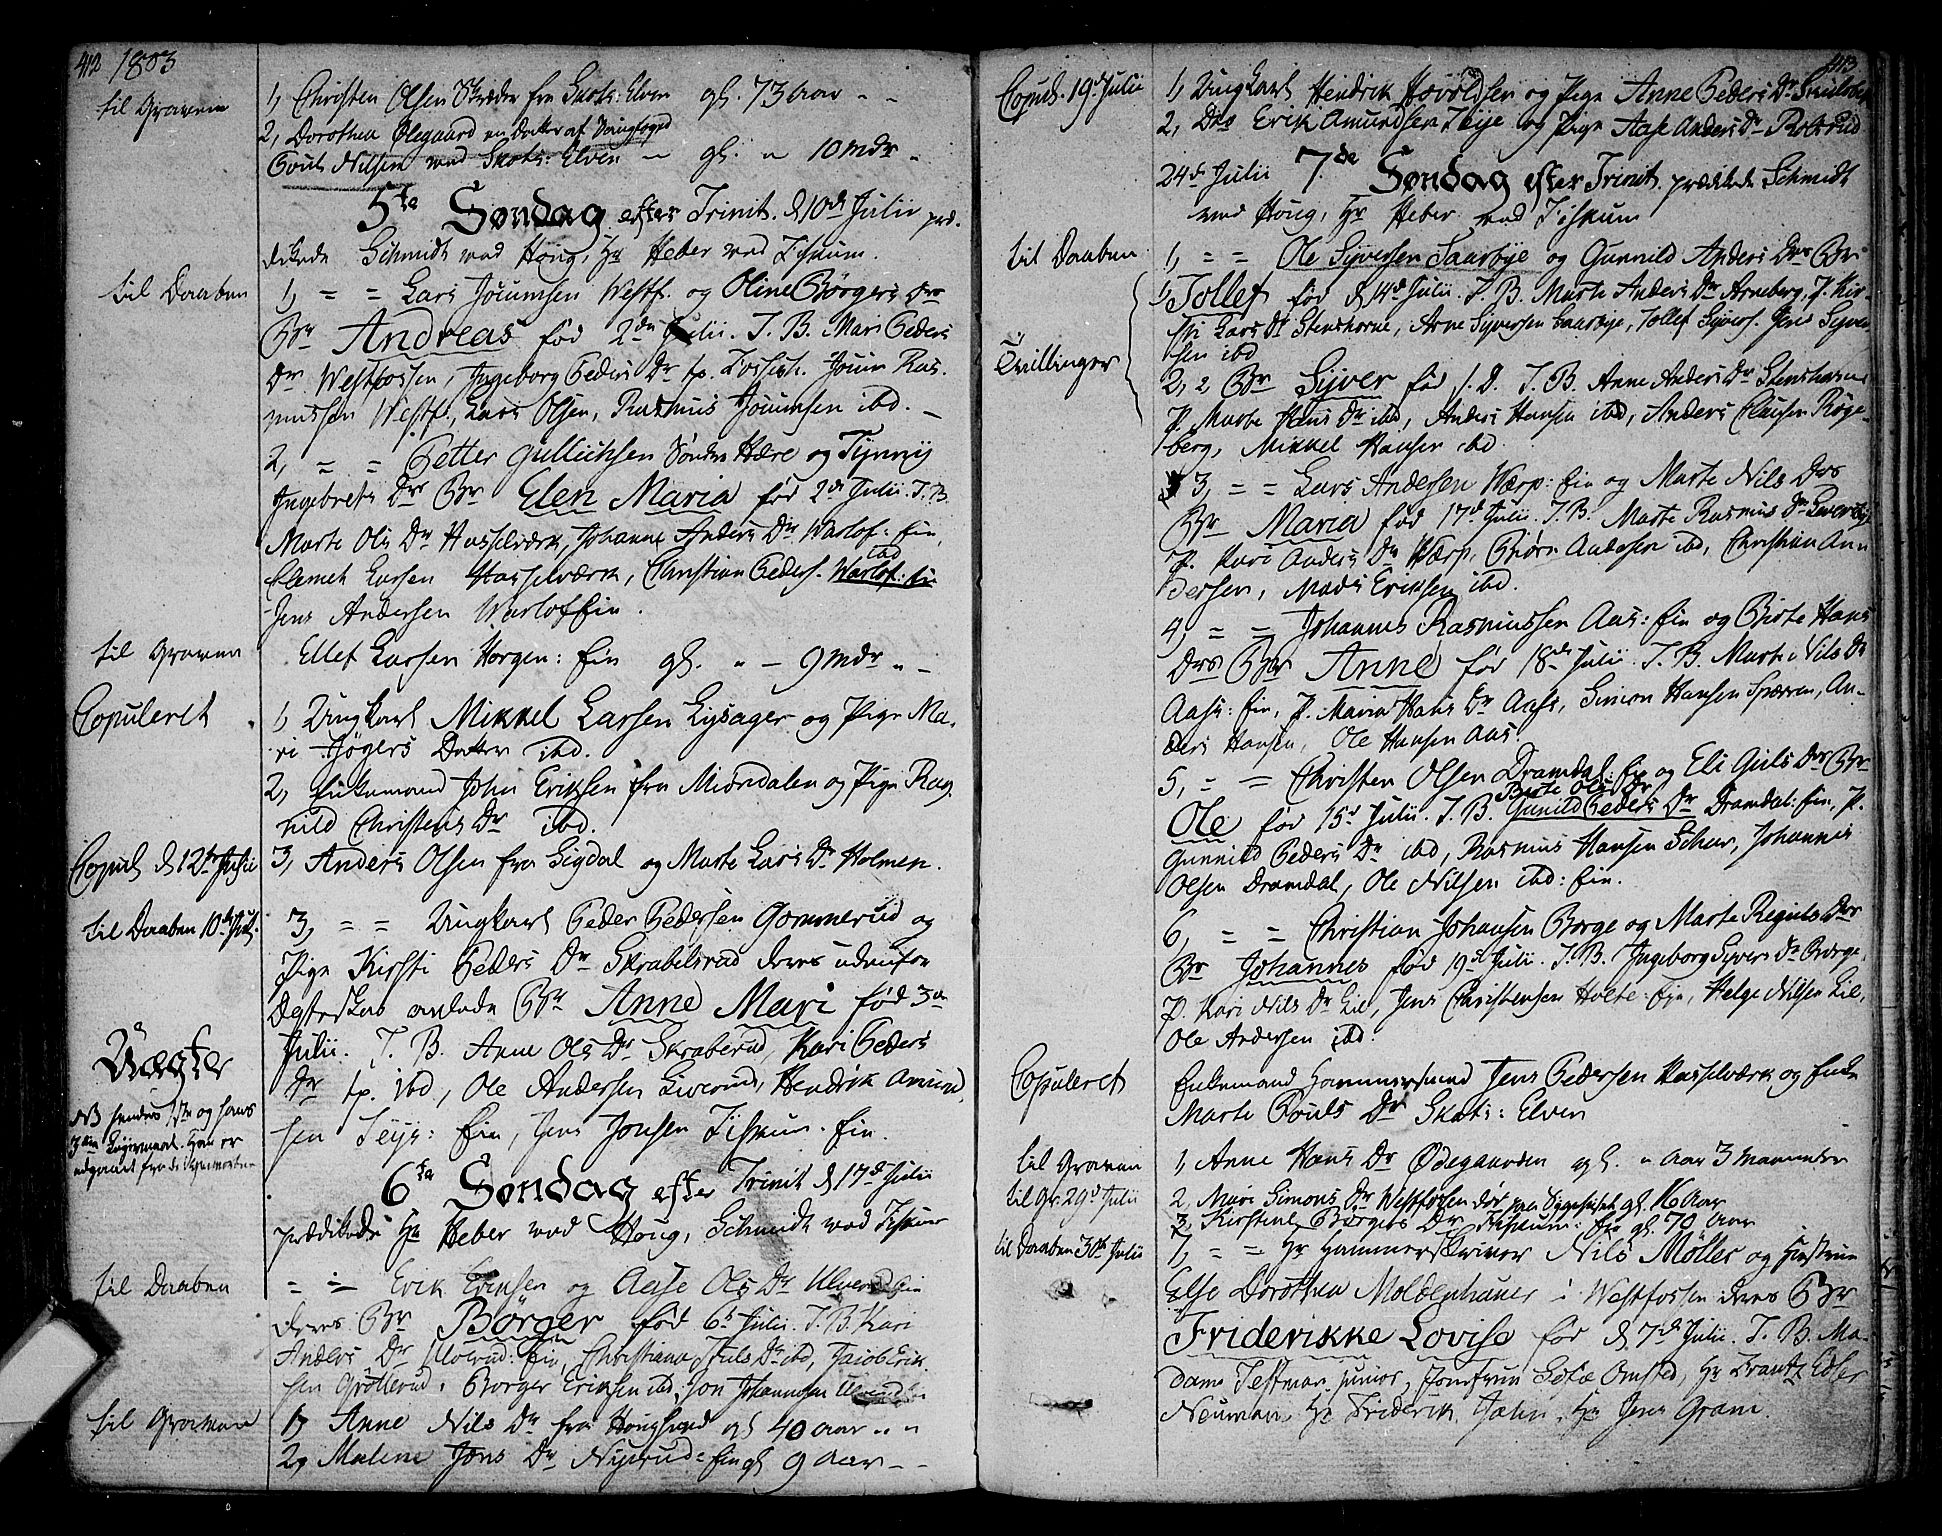 412 1803
til Graven
1, Christen Olsen Skræder fra Skots: Elven gl. 73 aar - -
2, Dorothea Ølegaard en Datter af
Nilsen ved Skots: Elven - gl. " 10 mdr "
5te Søndag efter Trinit. d 10de Julii præ-
dikede Schmidt ved Houg, Hr Heber ved Fiskum.
til Daaben
1, = = Lars Jörumsen Westf. og Oline Børgers Dr
Br Andreas fød 2den Julii. T. B. Mari Peders
Dr Westfossen, Ingeborg Peders Dr tp. Fosseh. Jörun Ras-
mussen Westf., Lars Olsen, Rasmus Jörumsen ibd. -
2, = = Petter Gullichsen Søndre Hære og Tynnij
Ingebrets Drs Br Elen Maria fød 2de Julii. T. B.
Marte Ols Dr Hasselværk, Johanne Anders Dr Warlof: Ein,
Clemet Larsen Hasselværk, Christian Peders. Warlof: Ein ibd
Jens Andersen Warloffein.
til Graven
Ellef Larsen Horgen: Ein gl. " - 9 mdr " -
Copuleret
1, Ungkarl Mikkel Larsen Lysager og Pige Ma-
ri Jøgers Datter ibd.
2, Enkemand John Eriksen fra Miöndalen og Pige Rag-
nild Christens Dr ibd.
Copul. d 12te Julii
3, Anders Olsen fra Sigdal og Marte Lars Dr Holmen.
til Daaben 10de Jul.
3, = = Ungkarl Peder Pedersen Gommerud og
Pige Kirsti Peders Dr Skrabelsrud deres udenfor
Egteskab avlede Br Anne Mari fød 3de
Julii. T. B. Anne Ols Dr Skraberud, Kari Peders
Dr tp. ibd, Ole Andersen Liverud, Hendrik Amund-
sen Teije: Ein, Jens Jonsen Fiskum: Ein.
Uægte
NB hendes 1ste og hans
3die Leiermaal. Han er
udgaaet fra de
6te Søndag efter Trinit d 17de Julii
prædikede Hr Heber ved Houg, Schmidt ved Fiskum
til Daaben
= = Erik Eriksen og Aasse Ols Dr Ulverud Ein
deres Br Børger fød 6te Julii. T. B. Kari
Anders Dr Ulverud: Ein, Christiana Juls Dr ibd, Jacob Erik-
sen Grøllerud, Børger Eriksen ibd, Jon Johannsen
til Graven
1, Anne Nils Dr fra Hougsund gl 40 aar " "
2, Malene Jens Dr Nyerud: Ein gl 9 aar - -
413
Copul. 19de Julii
1, Ungkarl Hendrik Hovelsen og Pige Anne Peders Dr
2, Do Erik Amundsen Teije og Pige Aase Anders Dr Rolsrud
24de Julii 7de Søndag efter Trinit. prædikede Schmidt
ved Houg, Hr Heber ved Fiskum
til Daaben
1, = = Ole Syversen Saarbye og Gunnild Anders Drs Br
1, Tollef fød d 14de Julii. T. B. Marte Anders Dr Arneberg, P. Kir-
sti Lars Dr Stenshorne, Arne Syversen Saarbye, Tollef Syvers. Jens Syver-
sen ibd
Tvillinger
2, 2 Br Syver fød s. D. T. B. Anne Anders Dr Stenshorne
P. Marte Hans Dr ibd, Anders Hansen ibd, Anders Clausen Røge-
berg, Mikkel Hansen ibd.
3, = = Lars Andersen Wærp: Ein og Marte Nils Drs
Br Maria fød 17de Julii. T. B. Marte Rasmus Dr
P. Kari Anders Dr Wærp, Biørn Andersen ibd, Christian An-
dersen, Mads Eriksen ibd.
4, = = Johannes Rasmussen Aas: Ein og Birte Hans
Drs Br Anne fød 18de Julii. T. B. Marte Nils Dr
Aass: Ein, P. Maria Hans Dr Aass, Simon Hansen Sperren, An-
ders Hansen, Ole Hansen Aas.
5, = = Christen Olsen Dramdal: Ein og Eli Guls Drs Br
Ole fød 15de Julii. T. B. Gunild Peders Dr Birte Ols Dr Dramdal: Ein, P.
Gunnild Peders Dr ibd, Rasmus Hansen Schur, Johannis
Olsen Dramdal, Ole Nilsen ibd: Ein.
6, = = Christian Johansen Borge og Marte Reginls Drs
Br Johannes fød 19de Julii. T. B. Ingeborg Syvers Dr Borge,
P. Kari Nils Dr Lie, Jens Christensen Holte: Ein, Helge Nilsen Lie,
Ole Andersen ibd.
Copuleret
Enkemand Hammersmed Jens Pedersen Hasselværk og Enke
Marte Pouls Dr Skots: Elven
til Graven
1, Anne Hans Dr Ødegaarden gl. " aar 3 maaneder
til Gr. 29de Julii
2, Mari Simons Dr Westfossen gl. 16 aar
3, Kirstine Børgers Dr Fiskum: Ein gl. 70 aar
til Daaben 30de Julii
1, = = Hr Hammerskriver Nils Möller og Hustrue
Else Dorothea Moldenhauer i Westfossen deres Br
Friderikke Lovise fød d 7de Julii. T. B. Ma-
dame Tessmar junior, Jomfrue Omsted, Hr Frantz Edler
Neuman, Hr Friderik Jahn, Hr Jens Gram.